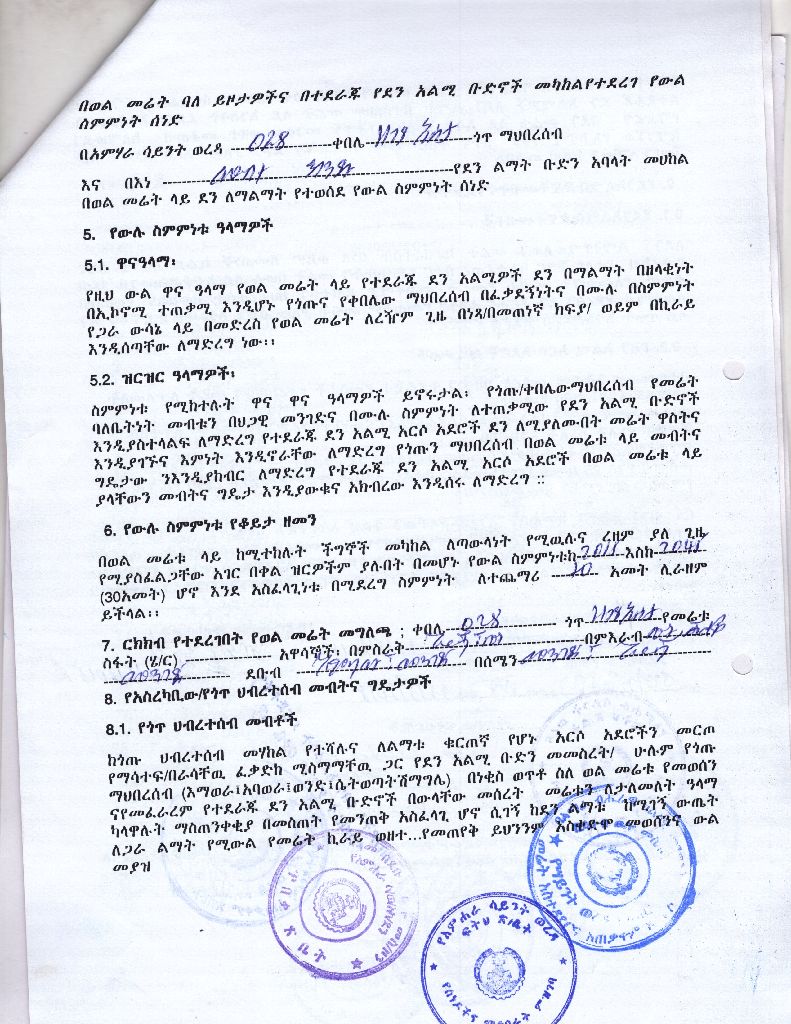 በወል መሬት ባለ ይዞታዎችና በተደራጁ የደን አልሚ ቡድኖች መካከልየተደረገ የውል
ስምምነት ሰነድ
በአምሃራ ሳይንት ወረዳ 028 ቀበሌ ጎጥ ማህበረሰብ
እና በእነ የደን ልማት ቡድን አባላት መሀከል
በወል መሬት ላይ ደን ለማልማት የተወሰደ የውል ስምምነት ሰነድ
5. የውሉ ስምምነቱ ዓላማዎች
5.1. ዋናዓላማ፡
የዚህ ውል ዋና ዓላማ የወል መሬት ላይ የተደራጁ ደን አልሚዎች ደን በማልማት በዘላቂነት
በኢኮኖሚ ተጠቃሚ እንዲሆኑ የጎጡና የቀበሌው ማህበረሰብ በፈቃደኝነትና በሙሉ በስምምነት
የጋራ ውሳኔ ላይ በመድረስ የወል መሬት ለረዥም ጊዜ በነጻ/በመጠነኛ ክፍያ/ ወይም በኪራይ
እንዲሰጣቸው ለማድረግ ነው፡፡
5.2. ዝርዝር ዓላማዎች፡
ስምምነቱ የሚከተሉት ዋና ዋና ዓላማዎች ይኖሩታል፡ የጎጡ/ቀበሌውማህበረሰብ የመሬት
ባለቤትነት መብቱን በህጋዊ መንገድና በሙሉ ስምምነት ለተጠቃሚው የደን አልሚ ቡድኖች
እንዲያስተላልፍ ለማድረግ የተደራጁ ደን አልሚ አርሶ አደሮች ደን ለሚያለሙበት መሬት ዋስትና
እንዲያገኙና እምነት እንዲኖራቸው ለማድረግ የጎጡን ማህበረሰብ በወል መሬቱ ላይ መብትና
ግዴታው ንእንዲያከብር ለማድረግ የተደራጁ ደን አልሚ አርሶ አደሮች በወል መሬቱ ላይ
ያላቸውን መብትና ግዴታ እንዲያውቁና አክብረው እንዲሰሩ ለማድረግ ::
6. የውሉ ስምምነቱ የቆይታ ዘመን
በወል መሬቱ ላይ ከሚተከሉት ችግኞች መካከል ለጣውላነት የሚዉሉና ረዘም ያለ ጊዜ
የሚያስፈልጋቸው አገር በቀል ዝርዎችም ያሉበት በመሆኑ የውል ስምምነቱከ 2011 እስከ 2041
(30አመት) ሆኖ እንደ አስፈላጊነቱ በሚደረግ ስምምነት ለተጨማሪ 10 አመት ሊራዘም
ይችላል፡፡
7. ርክክብ የተደረገበት የወል መሬት መግለጫ ፡ ቀበሌ 028 ጎጥ የመሬቱ
ስፋት (ሄ/ር) አዋሳኞች፡ በምስራቅ በምእራብ
ደቡብ በሰሜን
8. የአስረካቢው/የጎጥ ህብረተሰብ መብትና ግዴታዎች
8.1. የጎጥ ህብረተሰብ መብቶች
ከጎጡ ህብረተሰብ መሃከል የተሻሉና ለልማቱ ቁርጠኛ የሆኑ አርሶ አደሮችን መርጦ
የማሳተፍ/በራሳቸዉ ፈቃድከ ሚስማማቸዉ ጋር የደን አልሚ ቡድን መመስረት/ ሁሉም የጎጡ
ማህበረሰብ (እማወራ፤አባወራ፤ወንድ፤ሴትወጣት፤ሽማግሌ) በነቂስ ወጥቶ ስለ ወል መሬቱ የመወሰን
ናየመፈራረም የተደራጁ ደን አልሚ ቡድኖች በውላቸው መሰረት መሬቱን ለታለመለት ዓላማ
ካላዋሉት ማስጠንቀቂያ በመስጠት የመንጠቅ አስፈላጊ ሆኖ ሲገኝ ከደን ልማቱ ከሚገኝ ውጤት
ለጋራ ልማት የሚውል የመሬት ኪራይ ወዘተ...የመጠየቅ ይህንንም አስቀድሞ መወሰንና ውል
መያዝ
የአምሐራ ሳይንት ወረዳ
ፍትህ ጽ/ቤት